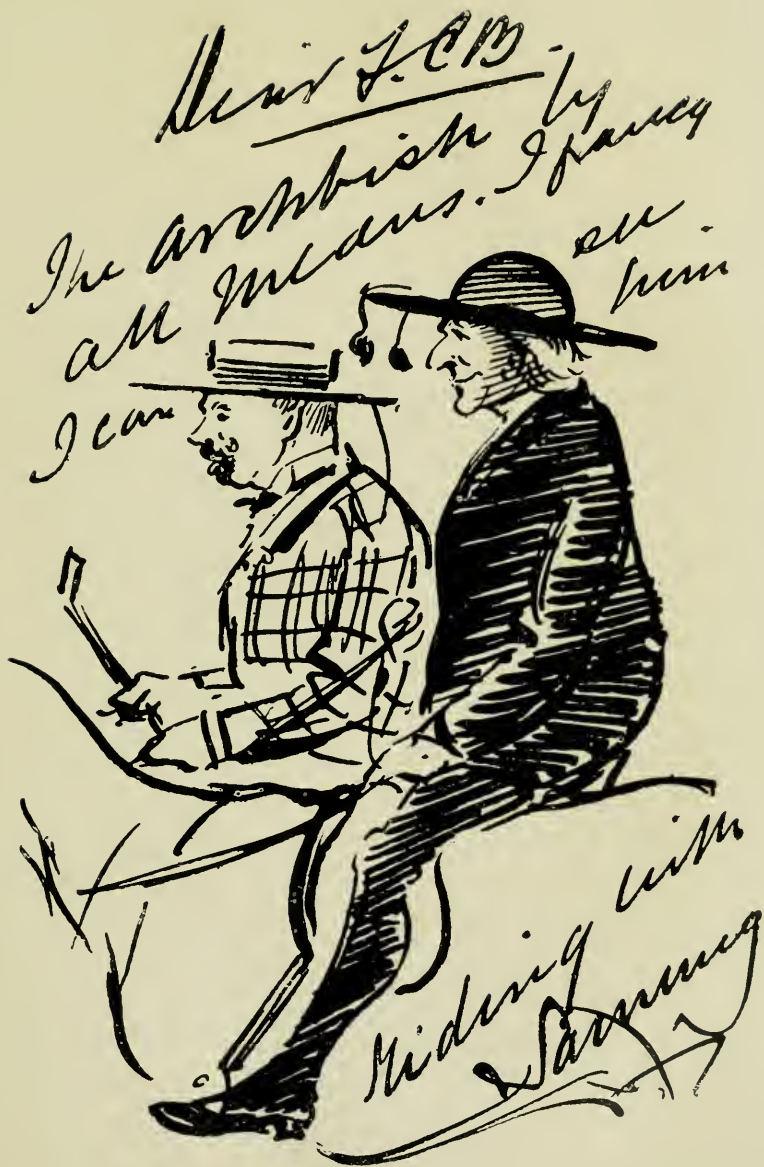 Dear F.C.B.
The Archbish by
all means. I fancy
I can see
him
riding with
Sammy